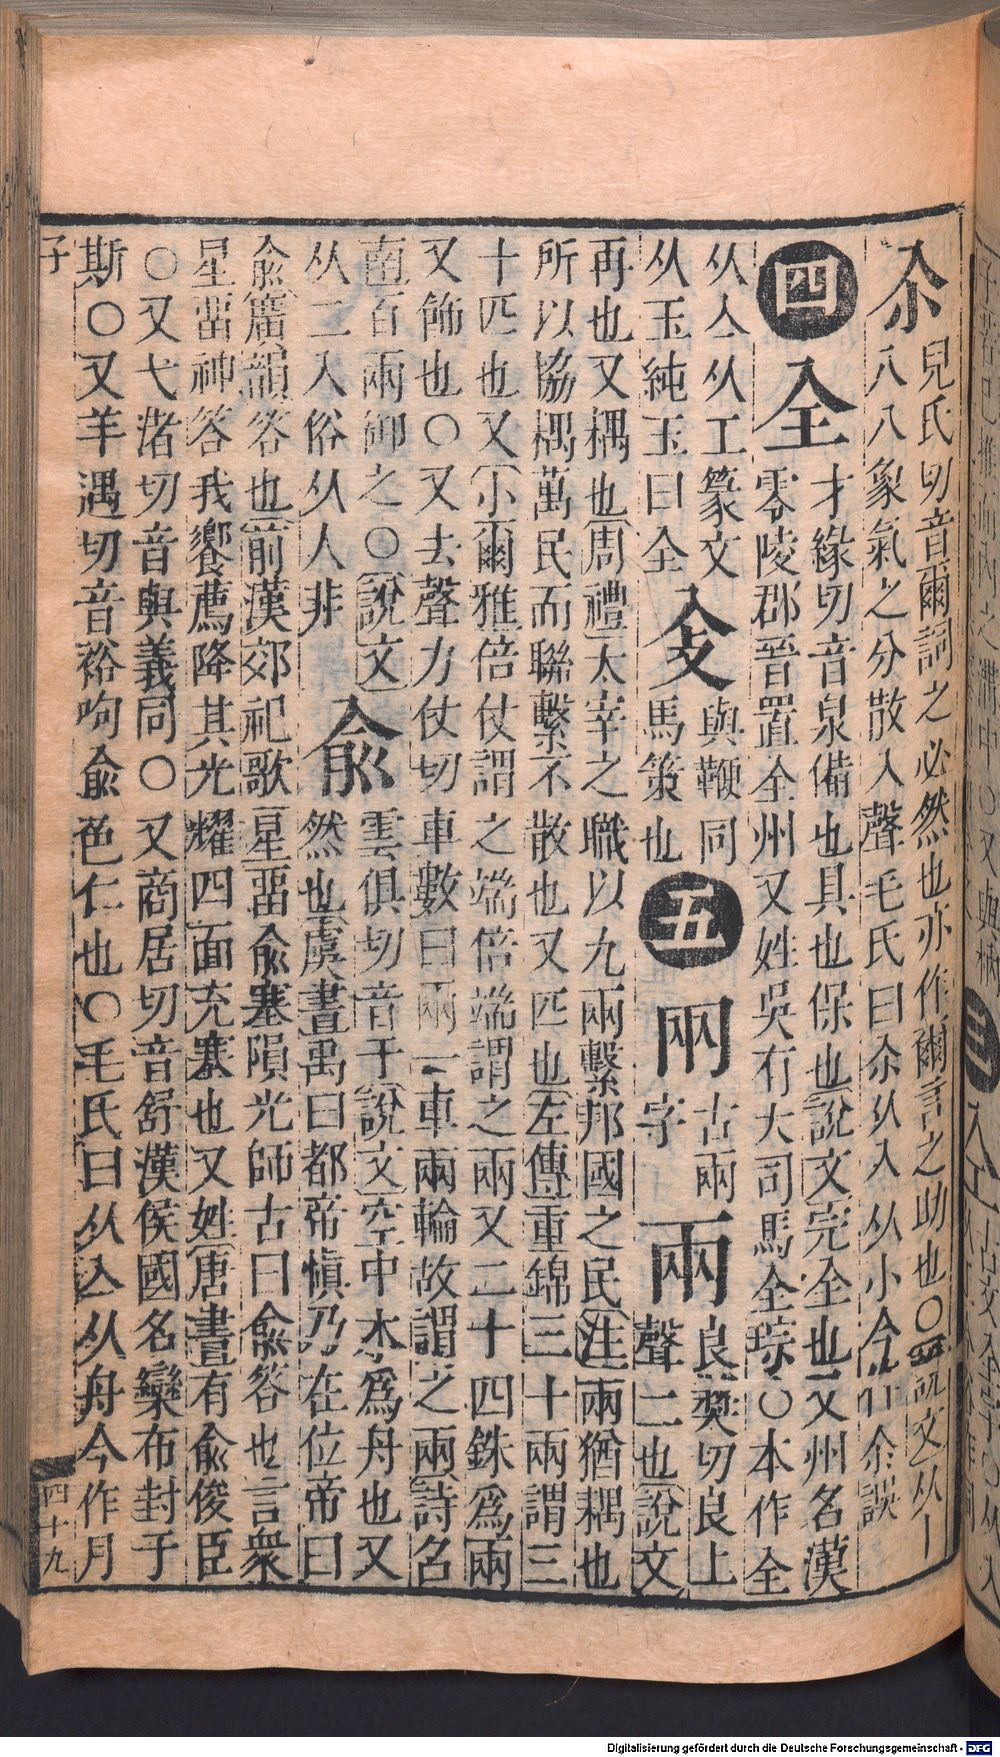 尒 兒氏切音爾詞之必然也亦作爾言之助也〇說文从丨
八八象氣之分散入聲毛氏曰尒从入从小今作尒誤
四 全 才緣切音泉備也具也保也說文完全也又州名漢
零陵郡晉置全州又姓吳有大司馬全琮〇本作仝
从亼从工篆文
从玉純玉曰全 㑒 與鞭同
馬策也 五 㒳 古兩
字 兩 良奬切良上
聲二也說文
再也又耦也周禮太宰之職以九兩繫邦國之民注兩猶耦也
所以協耦萬民而聯繫不散也又匹也左傳重錦三十兩謂三
十匹也又小爾雅倍仗謂之端倍端謂之兩又二十四銖爲兩
又飾也〇又去聲力仗切車數曰兩一車兩輪故謂之兩詩召
南百兩御之〇說文
从二入俗从人非 兪 雲俱切音于說文空中木爲舟也又
然也虞書禹曰都帝愼乃在位帝曰
兪廣韻答也前漢郊祀歌星畱兪塞隕光師古曰兪答也言衆
星畱神答我饗薦降其光耀四面充塞也又姓唐書有兪俊臣
〇又弋渚切音與義同〇又商居切音舒漢侯國名欒布封于
斯〇又羊遇切音裕呴兪色仁也〇毛氏曰从亼从舟今作月
子 四十九
Digitalisierung gefördert durch die Deutsche Forschungsgemeinschaft - DFG